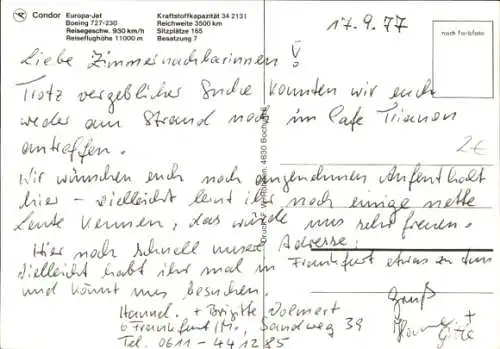 Condor
Europa-Jet
Boeing 727-230
Reisegeschw. 930 km/h
Reiseflughöhe 11000 m
Kraftstoffkapazität 34 213 l
Reichweite 3500 km
Sitzplätze 165
Besatzung 7
17.9.77
nach Farbfoto
Liebe Zimmernachbarinnen!
Trotz vergeblicher Suche konnten wir euch
weder am Strand noch im Cafe Trianon
antreffen.
2€
Wir wünschen euch noch angenehmen Aufenthalt
hier - vielleicht lernt ihr noch einige nette
Leute kennen, das würde uns sehr freuen.
Hier noch schnell unsere Adresse:
Vielleicht habt ihr mal in Frankfurt etwas zu tun
und könnt uns besuchen.
Gruß
Hannel. + Brigitte Volmert
6 Frankfurt/M., Sandweg 39
Tel. 0611-441285
+
Gitte